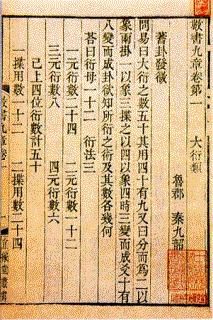 數書九章卷第一
大衍類
魯郡 秦九韶
蓍卦發微
問易曰大衍之數五十其用四十有九又曰分而為二以
象兩掛一以象三揲之以四以象四時三變而成爻十有
八變而成卦欲知所衍之術及其數各幾何
荅曰衍母一十二 衍法三
一元衍數二十四 二元衍數一十二
三元衍數八 四元衍數六
已上四位衍數計五十
一揲用數一十二 二揲用數二十四
數書九章 卷一
宜稼堂叢書